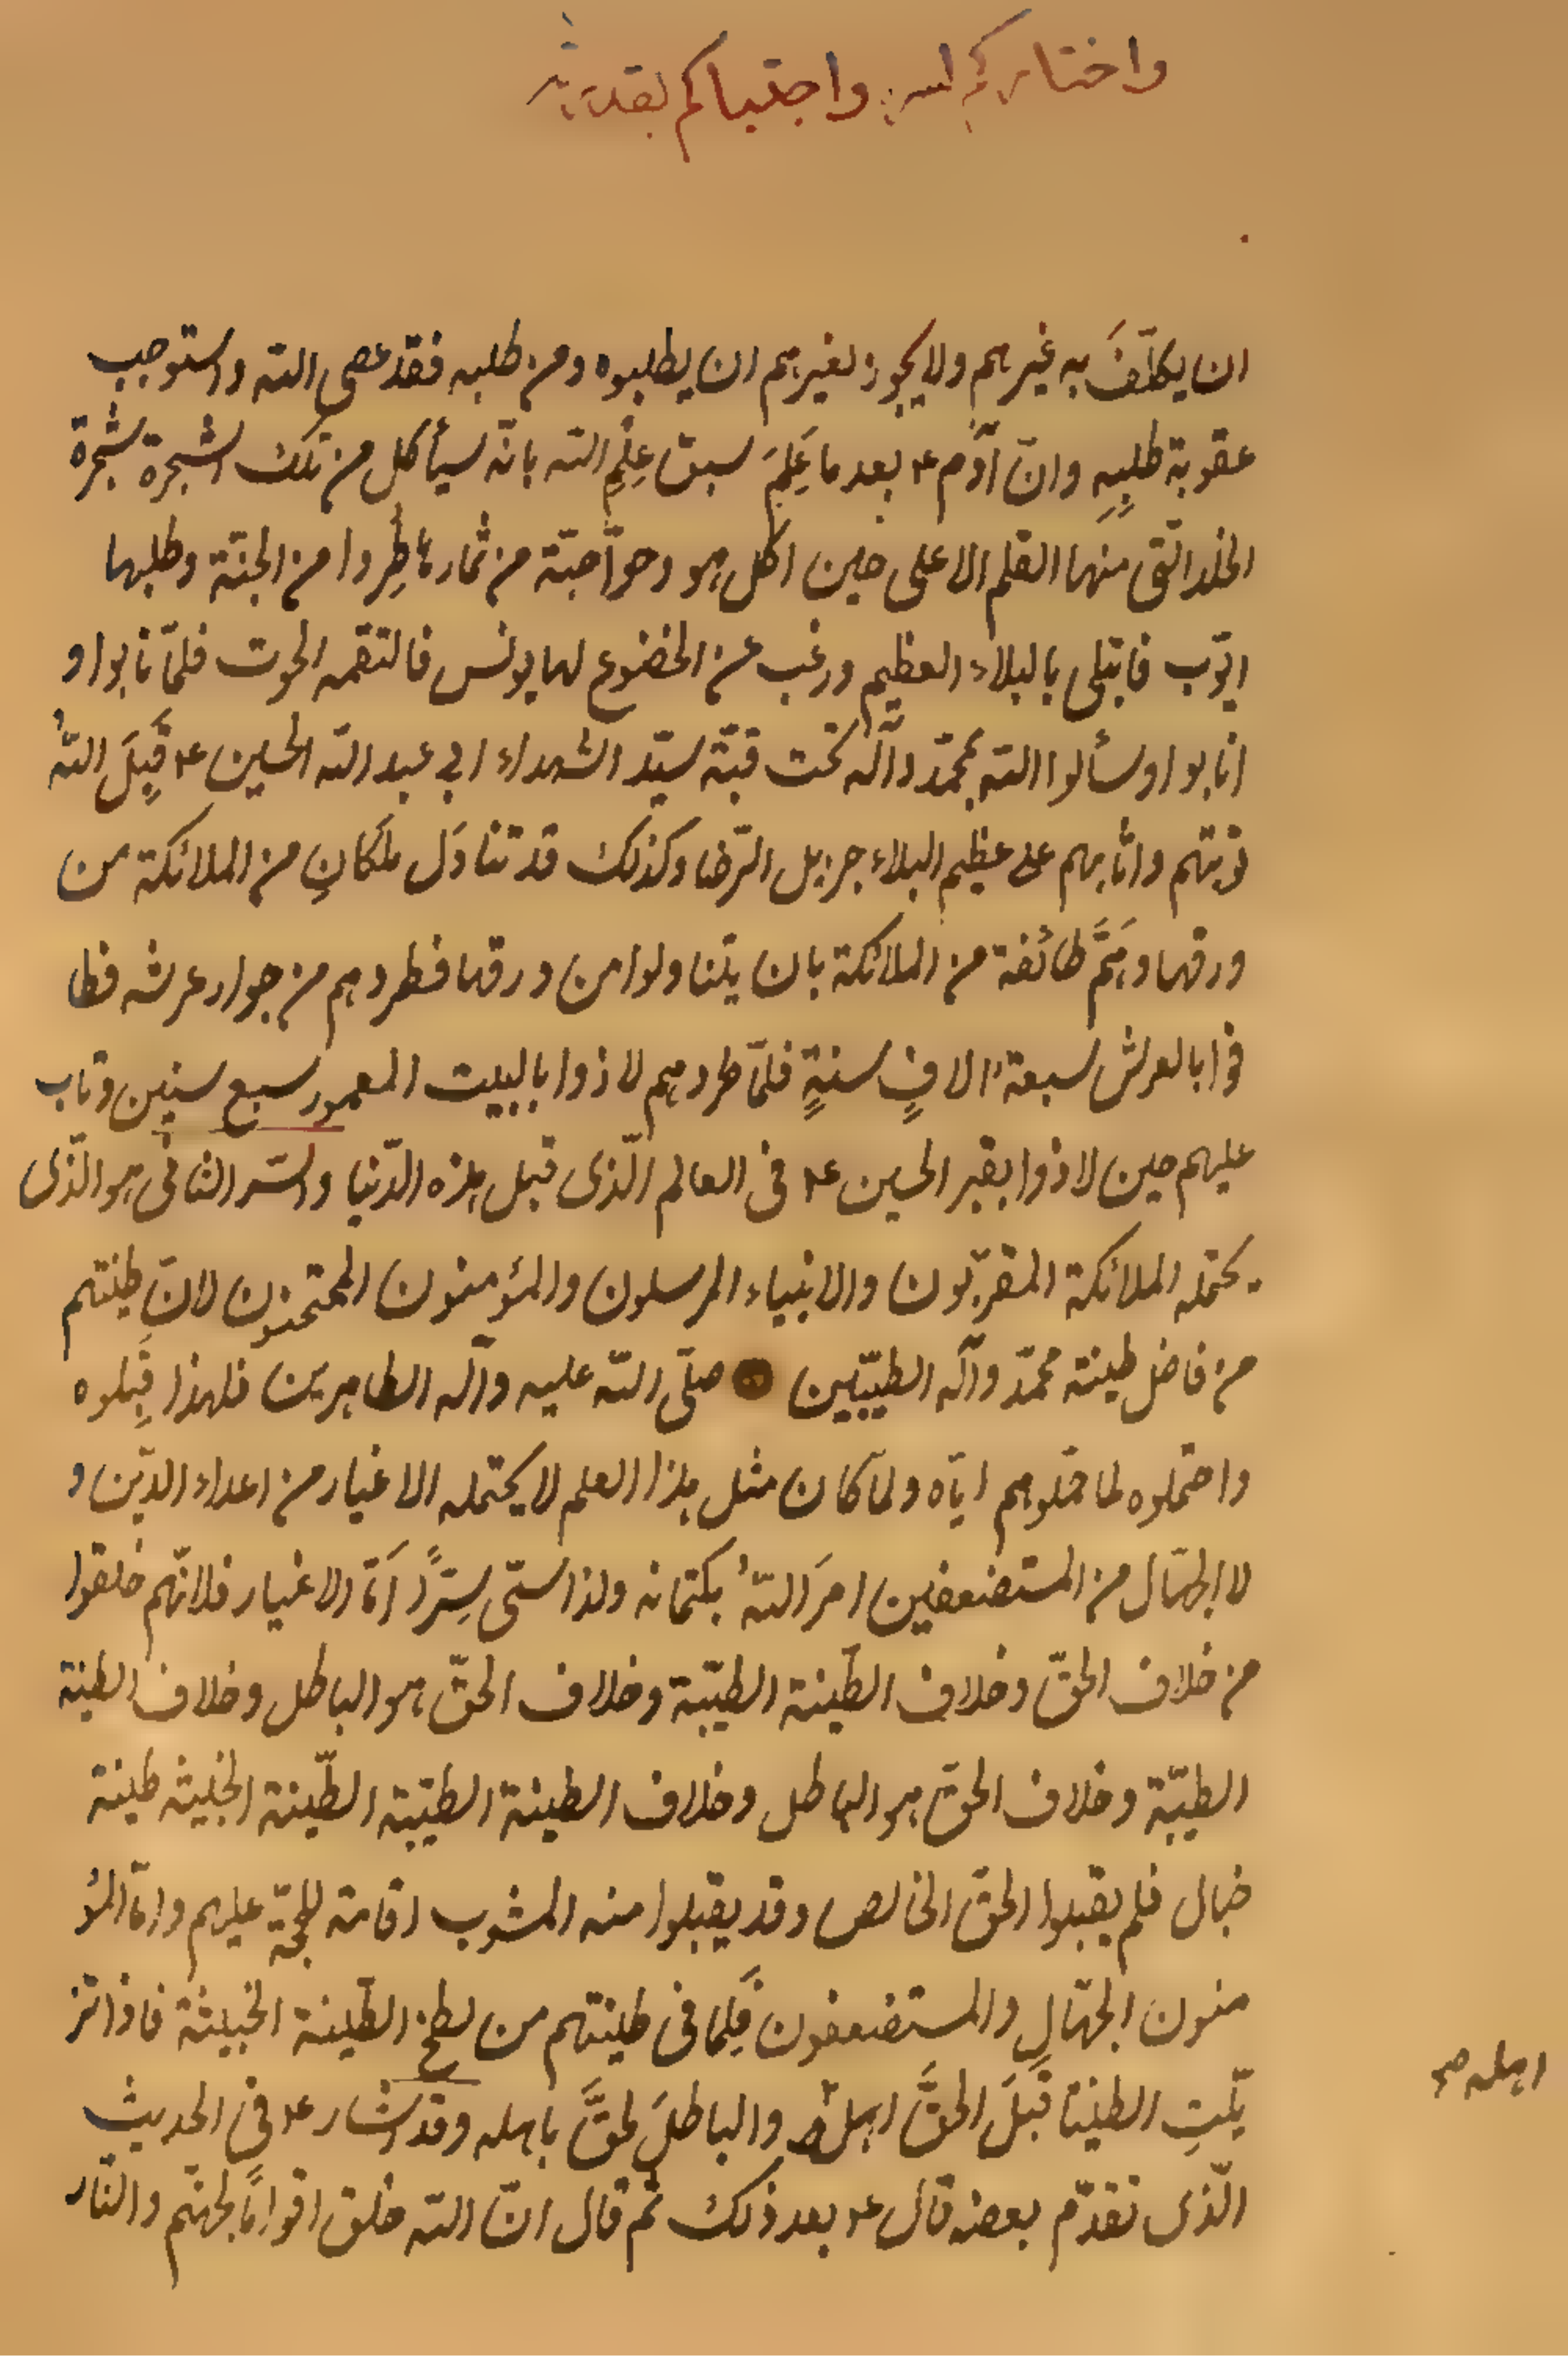 واختاركم لسره واجتباكم بقدرته
ان يكلّفَ به غيرهم ولا يجوز لغيرهم ان يطلبوه ومن طلبه فقد عصى الله واستوجب
عقوبة طلبِهِ وانّ آدَم ع بعد ما عَلِمَ سبق عِلْمِ الله بانّه سيأكل من تلك الشجرة شجرة
الخلد الّتى منها القلم الاعلى حين اكل هو وحوّا حبّة من ثمارها طُرِدوا من الجنّة وطلبها
ايّوب فابتلى بالبلاء العظيم ورغب عن الخضوع لها يونس فالتقمه الحوت فلمّا تابوا و
انابوا وسألوا الله بمحمّد وآله تحت قبّة سيّد الشهداء ابي عبد الله الحسين ع قَبِلَ اللهُ
توبتهم واثابهم على عظيم البلاء جزيل الرّضا وكذلك قد تناوَل ملَكانِ من الملائكة من
ورقها وهَمَّ طائفة من الملائكة بان يتناولوا من ورقها فطردهم من جوار عرشه فطا
فوا بالعرش سبعة الافِ سنةٍ فلمّا طردهم لاذوا بالبيت المعمور سبع سنين وتاب
عليهم حين لاذوا بقبر الحسين ع فى العالم الّذى قبل هذه الدّنيا والسّر الثانى هو الّذى
يحتمله الملائكة المقرّبون والانبياء المرسلون والمؤمنون الممتحنون لانّ طينتهم
من فاضل طينة محمّد وآله الطيّبين صلّى اللّه عليه وآله الطاهرين فلهذا قَبِلوه
واحتملوه لما حمّلوهم ايّاه ولمّا كان مثل هذا العلم لا يحتمله الاغيار من اعداء الدّين و
لا الجهّال من المستضعفين امرَ اللّهُ بكتمانه ولذا سمّى سِرّاً امّا الاغيار فلانّهم خلقوا
من خلاف الحقّ وخلاف الطّينة الطيّبة وخلاف الحقّ هو الباطل وخلاف الطينة
الطيبّة وخلاف الحقّ هو الباطل وخلاف الطينة الطيّبة الطّينة الخبيثه طينة
خبال فلم يقبلوا الحقّ الخالص وقد يقبلوا منه المشوب اقامة للحجّة عليهم وامّا المؤ
منون الجهّالِ والمستضعفون فَلِما فى طينتهم من لطخ الطّينة الخبيثة فاذا تز
يّلتِ الطينتا قَبلَ الحقَّ اهله والباطلَ لحقَّ باهله وقد اشار ع في الحديث
اهله صح
الّذى تقدّم بعضه قال ع بعد ذلك ثم قال انّ الله خلق اقواماً لجهنّم والنّار